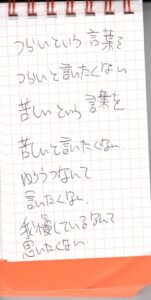 つらいという言葉を
つらいと言いたくない
苦しいという言葉を
苦しいと言いたくない
ゆううつなんて
言いたくない
我慢しているなんて
思いたくない